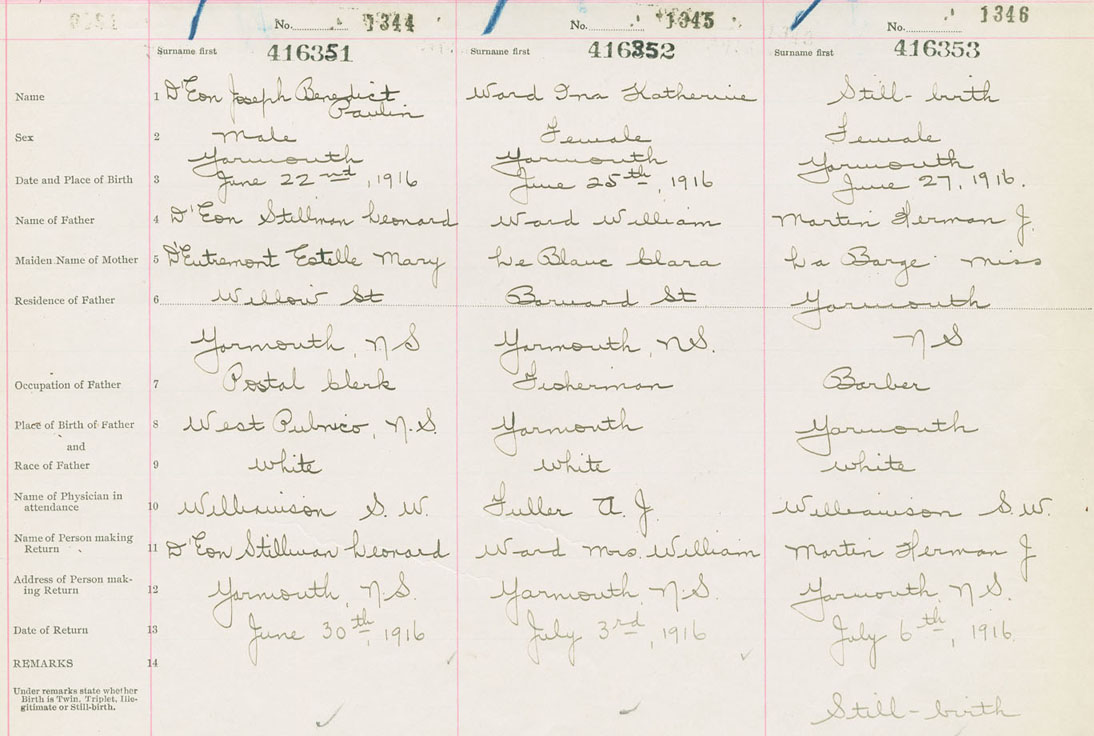 No. 1344
No. 1345
No. 1346
Surname first 416351
Surname first 416352
Surname first 416353
Name 1 D'Eon Joseph Benedict Paulin
Ward Ina Katherine
Still-birth
Sex 2 Male
Female
Female
Date and Place of Birth 3 Yarmouth
June 22nd, 1916
Yarmouth
June 25th, 1916
Yarmouth
June 27, 1916.
Name of Father 4 D'Eon Stillman Leonard
Ward William
Martin Herman J.
Maiden Name of Mother 5 D'Eutremont Estelle Mary
Le Blanc Clara
La Barge Miss
Residence of Father 6 Willow St
Yarmouth, N S
Barnard St
Yarmouth, N.S.
Yarmouth
N S
Occupation of Father 7 Postal Clerk
Fisherman
Barber
Place of Birth of Father 8 West Pubnico, N.S.
Yarmouth
Yarmouth
and
Race of Father 9 White
White
White
Name of Physician in
attendance 10 Williamson S. W.
Fuller A. J.
Williamson S. W.
Name of Person making
Return 11 D'Eon Stillman Leonard
Ward Mrs. William
Martin Herman J
Address of Person mak-
ing Return 12 Yarmouth, N.S.
Yarmouth N.S.
Yarmouth, N.S.
Date of Return 13 June 30th, 1916
July 3rd, 1916
July 6th, 1916.
REMARKS 14
Under remarks state whether
Birth is Twin, Triplet, Ille-
gitimate or Still-birth.
Still-birth